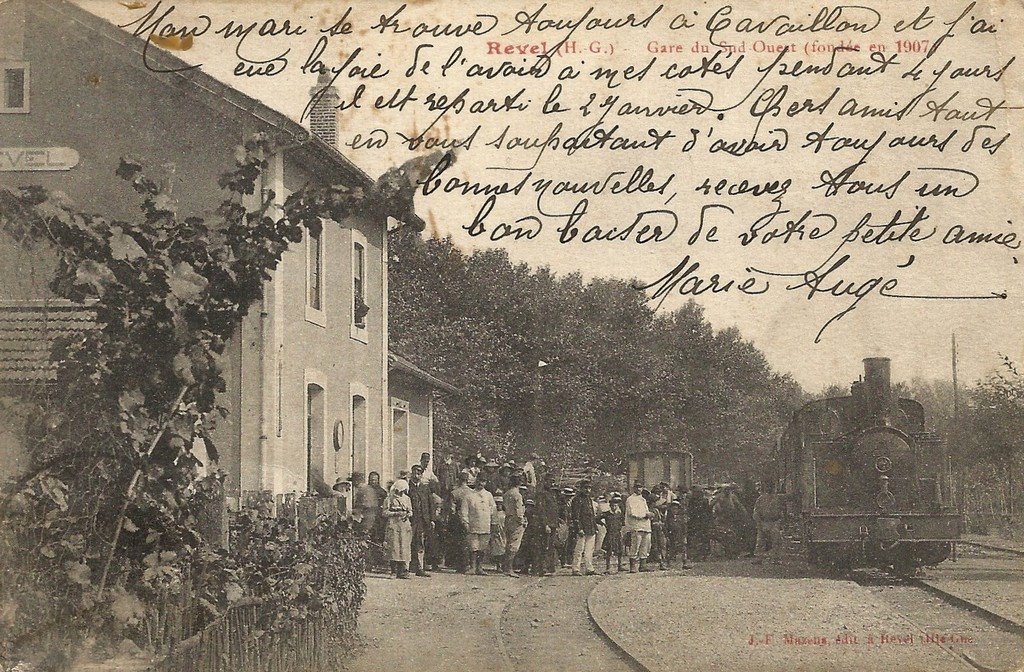 Mon mari se trouve toujours à Cavaillon et j'ai
Revel (H. G.) - Gare du Sud-Ouest (fondée en 1907)
eue la joie de l'avoir à mes cotés pendant 4 jours
il est reparti le 2 Janvier. Chers amis tout
en vous souhaitant d'avoir toujours des
bonnes nouvelles, recevez tous un
bon baiser de votre petite amie,
Marie Augé
EVEL
J. F. Mazens, édit. à Revel (Hte-Gne